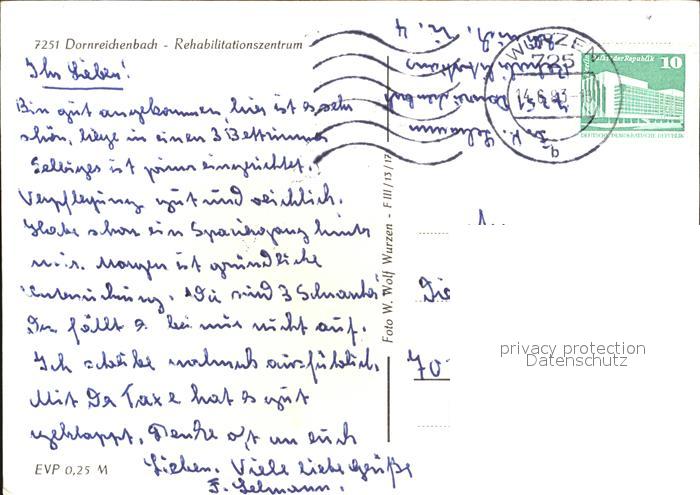 7251 Dornreichenbach - Rehabilitationszentrum
Ihr Lieben!
Bin gut angekommen, hier ist es sehr
schön, liege in einen 3 Bettzimmer
Selbiges ist prima eingerichtet.
Verpflegung gut und reichlich.
Habe schon ein Spaziergang hinter
mir. Morgen ist gründliche
Untersuchung. Wir sind 3
fällt es bei mir nicht auf.
Ich schreibe nochmals ausführlich.
Mit der Taxe hat es gut
geklappt. Denke oft an euch
Lieben. Viele liebe Grüße
EVP 0,25 M
Foto W. Wolf Wurzen - F III/13/17
WURZEN
725
14.6.83
Palast der Republik
10
DEUTSCHE DEMOKRATISCHE REPUBLIK
70
privacy protection
Datenschutz